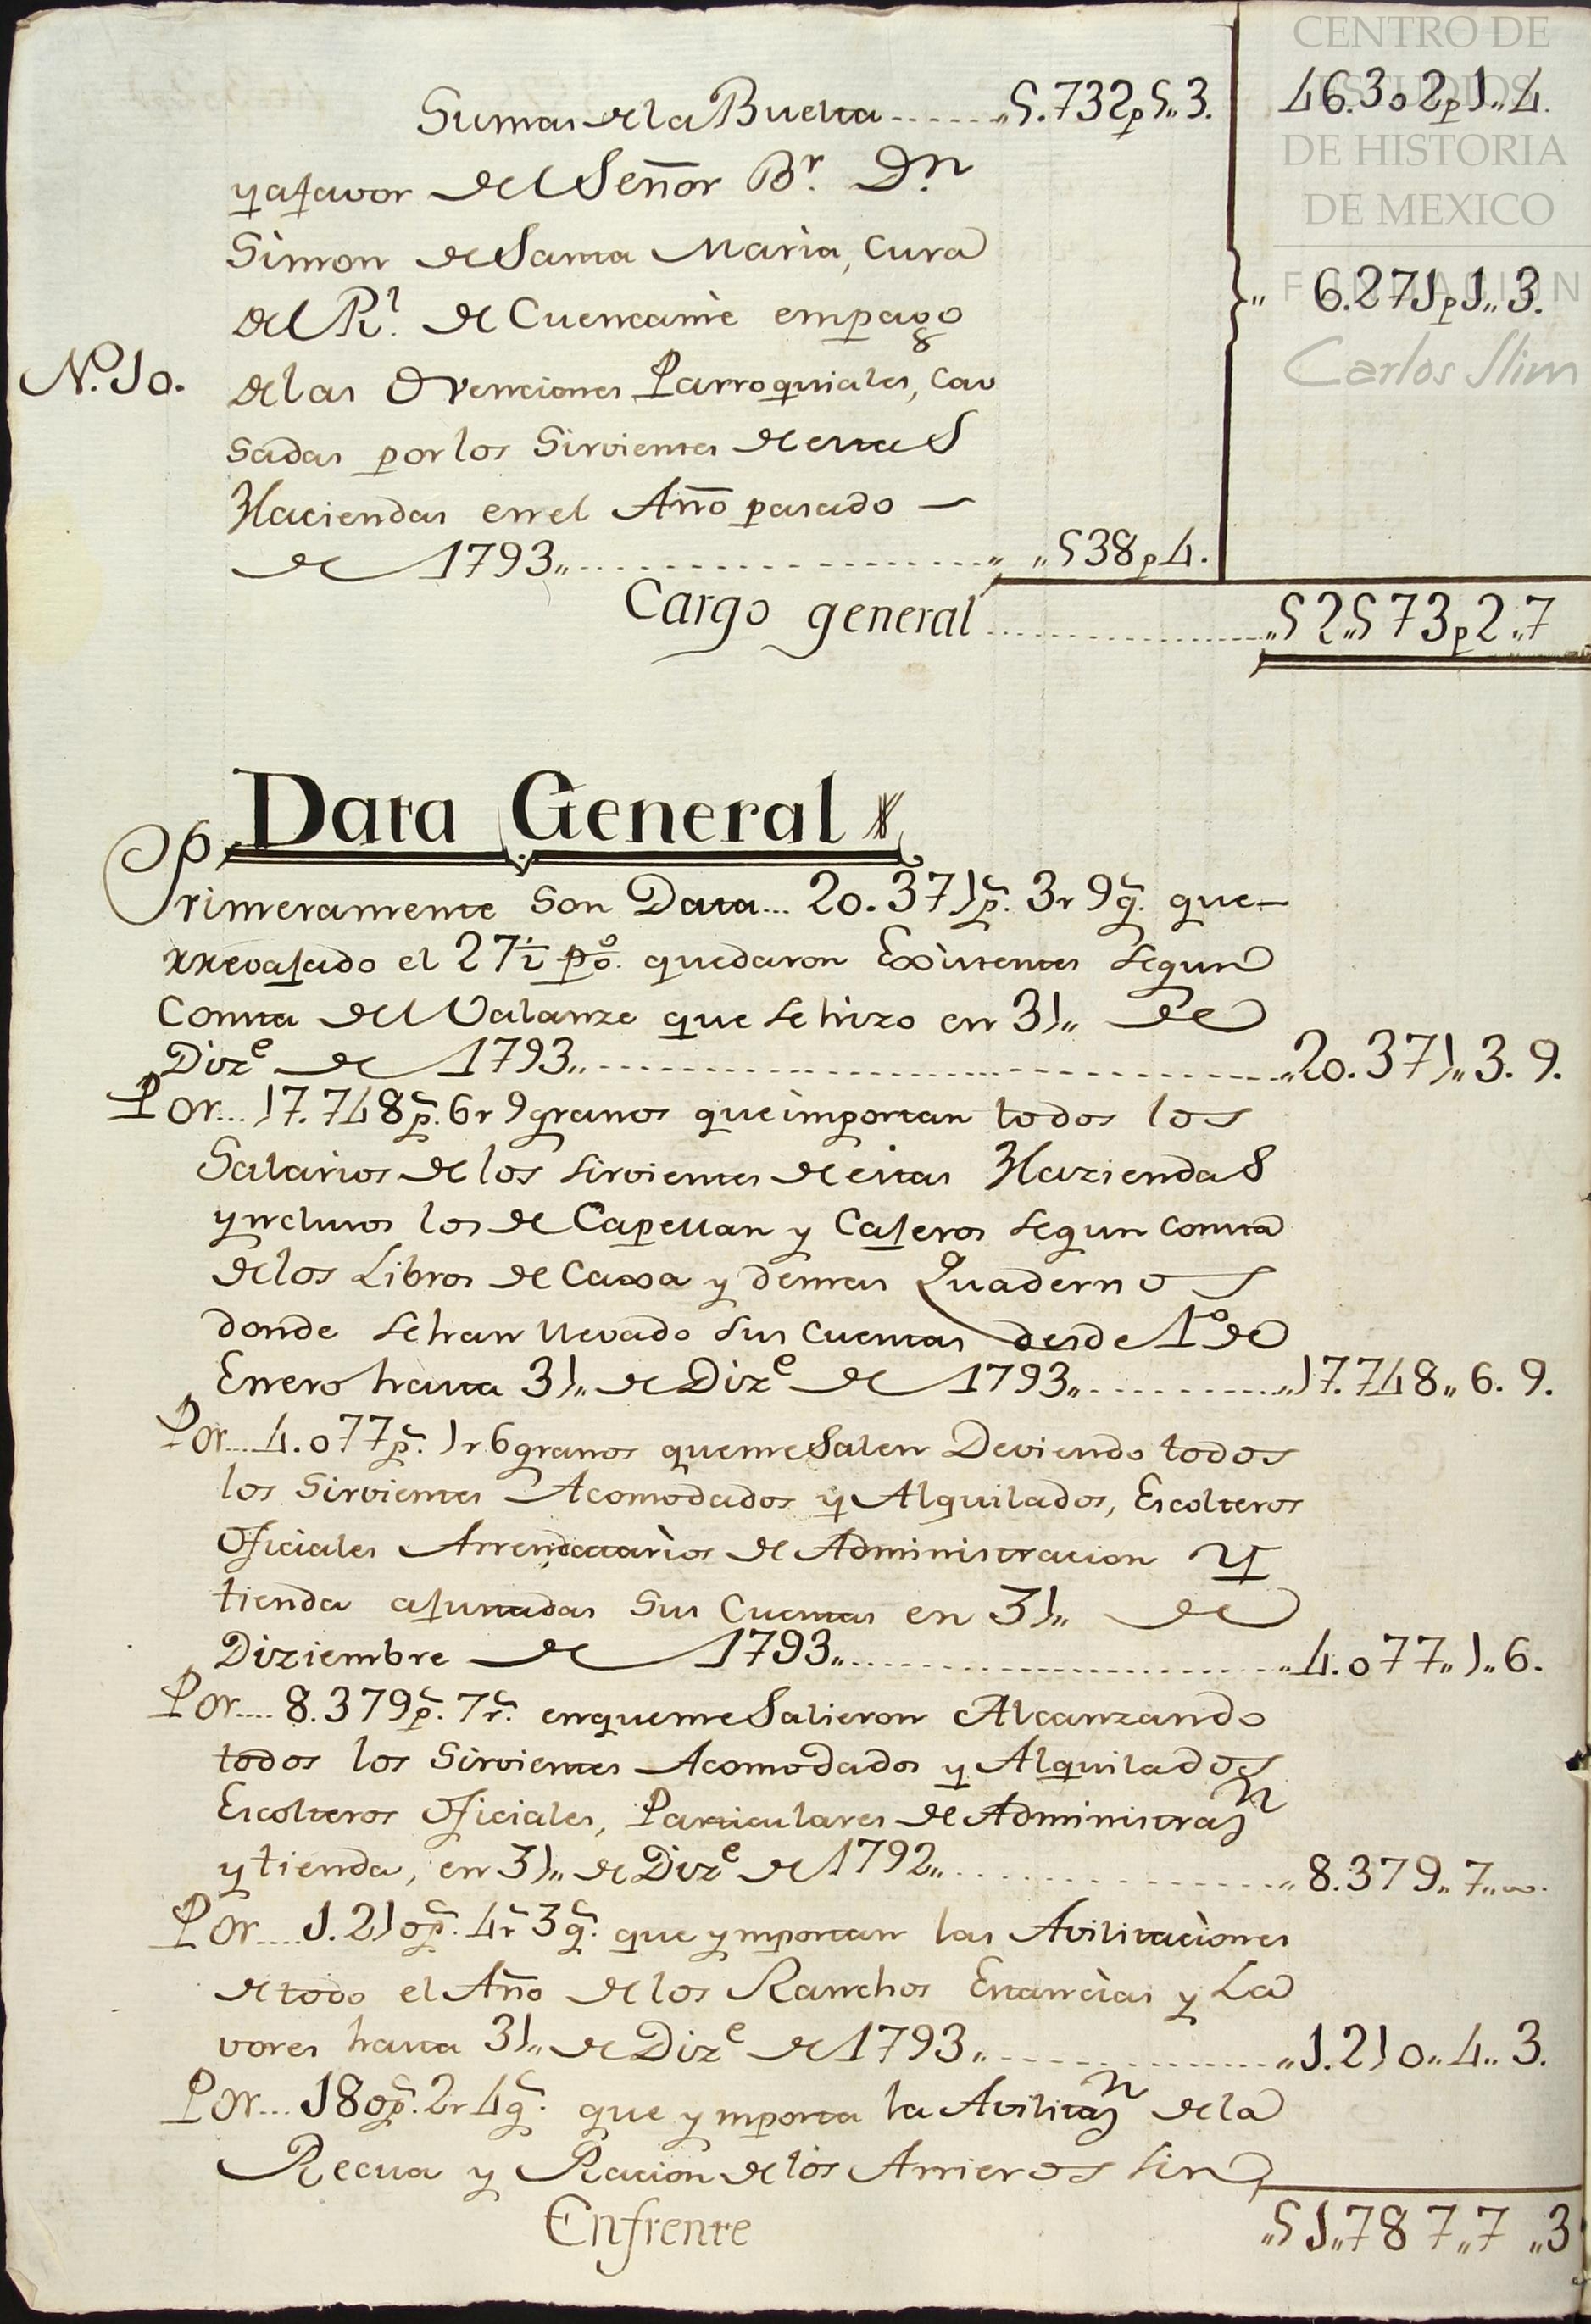 CENTRO DE
ESTUDIOS
DE HISTORIA
DE MEXICO
FUNDACION
Carlos Slim
Sumas de la Buelta ...... 5.732p5,,3. 46.302p1,,4.
y afavor del Señor Br. Dn.
Simon de Santa Maria, Cura
del Rl. de Cuencamè empago
Nº. 10. de las Ovenciones Parroquiales, cau
sadas por los Sirvientes de estas
Haciendas en el Año pasado
de 1793,, ...... ,,538p4. ,, 6.271p1,,3.
Cargo general ...... ,,52,,573p2,,7
Data General
Primeramente son Data... 20.371ps. 3r 9gs. que
rrevajado el 27½ po. quedaron Existentes segun
Consta del Valanze que se hizo en 31,, de
Dize de 1793,, ...... ,,20.371,,3.9.
Por... 17.748ps. 6r 9granos que importan todos los
Salarios de los sirvientes de estas Haziendas
ynclusos los de Capellan y Cajeros segun consta
de los Libros de Caxa y demas Quadernos
donde se han llevado sus cuentas desde 1º de
Enero hasta 31,, de Dize de 1793,, ...... ,,17.748,,6.9.
Por... 4.077ps. 1r 6granos que me Salen Deviendo todos
los Sirvientes Acomodados y Alquilados, Escolteros
Oficiales Arrendatarios de Administracion y
tienda ajustadas sus Cuentas en 31,, de
Diziembre de 1793,, ...... ,,4.077,,1,,6.
Por.... 8.379ps. 7rs. en que me Salieron Alcanzando
todos los Sirvientes Acomodados y Alquilados
Escolteros Oficiales, Particulares de Administran
y tienda, en 31,, de Dize de 1792,, ...... ,,8.379,,7,,
Por.... 1.210ps. 4rs 3gs. que ymportan las Avilitaciones
de todo el Año de los Ranchos Estancias y La
vores hasta 31,, de Dize de 1793,, ...... ,,1.210,,4,,3.
Por... 180ps. 2r 4gs. que ymporta la Avilitan de la
Recua y Racion de los Arrieros sin
Enfrente ,,51,,787,,7,,3